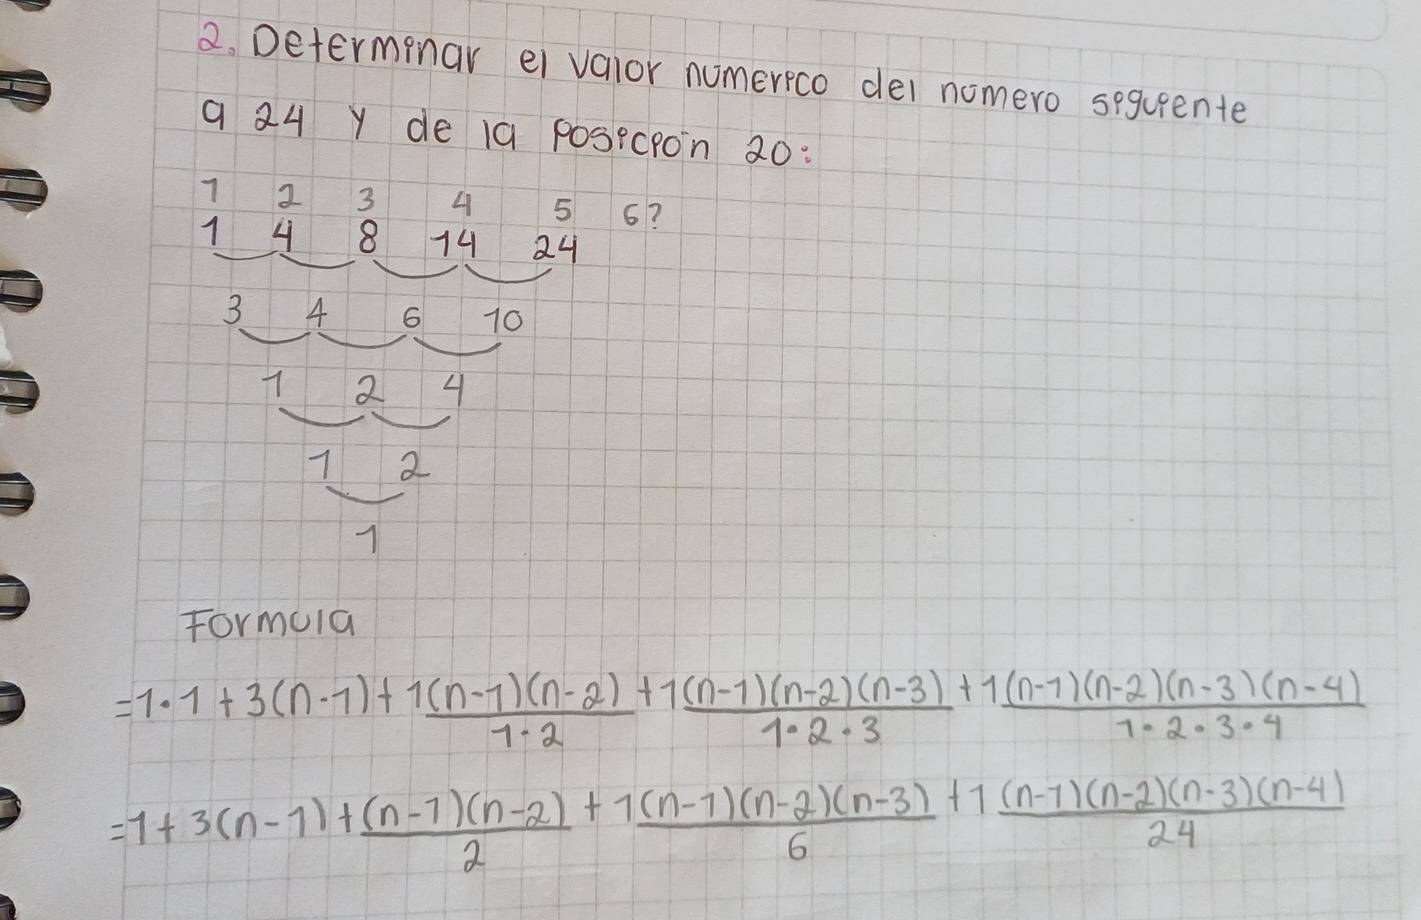 2. Determinar el valor numerico del numero siguiente
a 24 y de la posición 20:
1 2 3 4 5 6?
1 4 8 14 24
3 4 6 10
1 2 4
1 2
1
Formula
=1·1+3(n-1)+1(n-1)(n-2)/1·2+1(n-1)(n-2)(n-3)/1·2·3+1(n-1)(n-2)(n-3)(n-4)/1·2·3·4
=1+3(n-1)+(n-1)(n-2)/2+1(n-1)(n-2)(n-3)/6+1(n-1)(n-2)(n-3)(n-4)/24